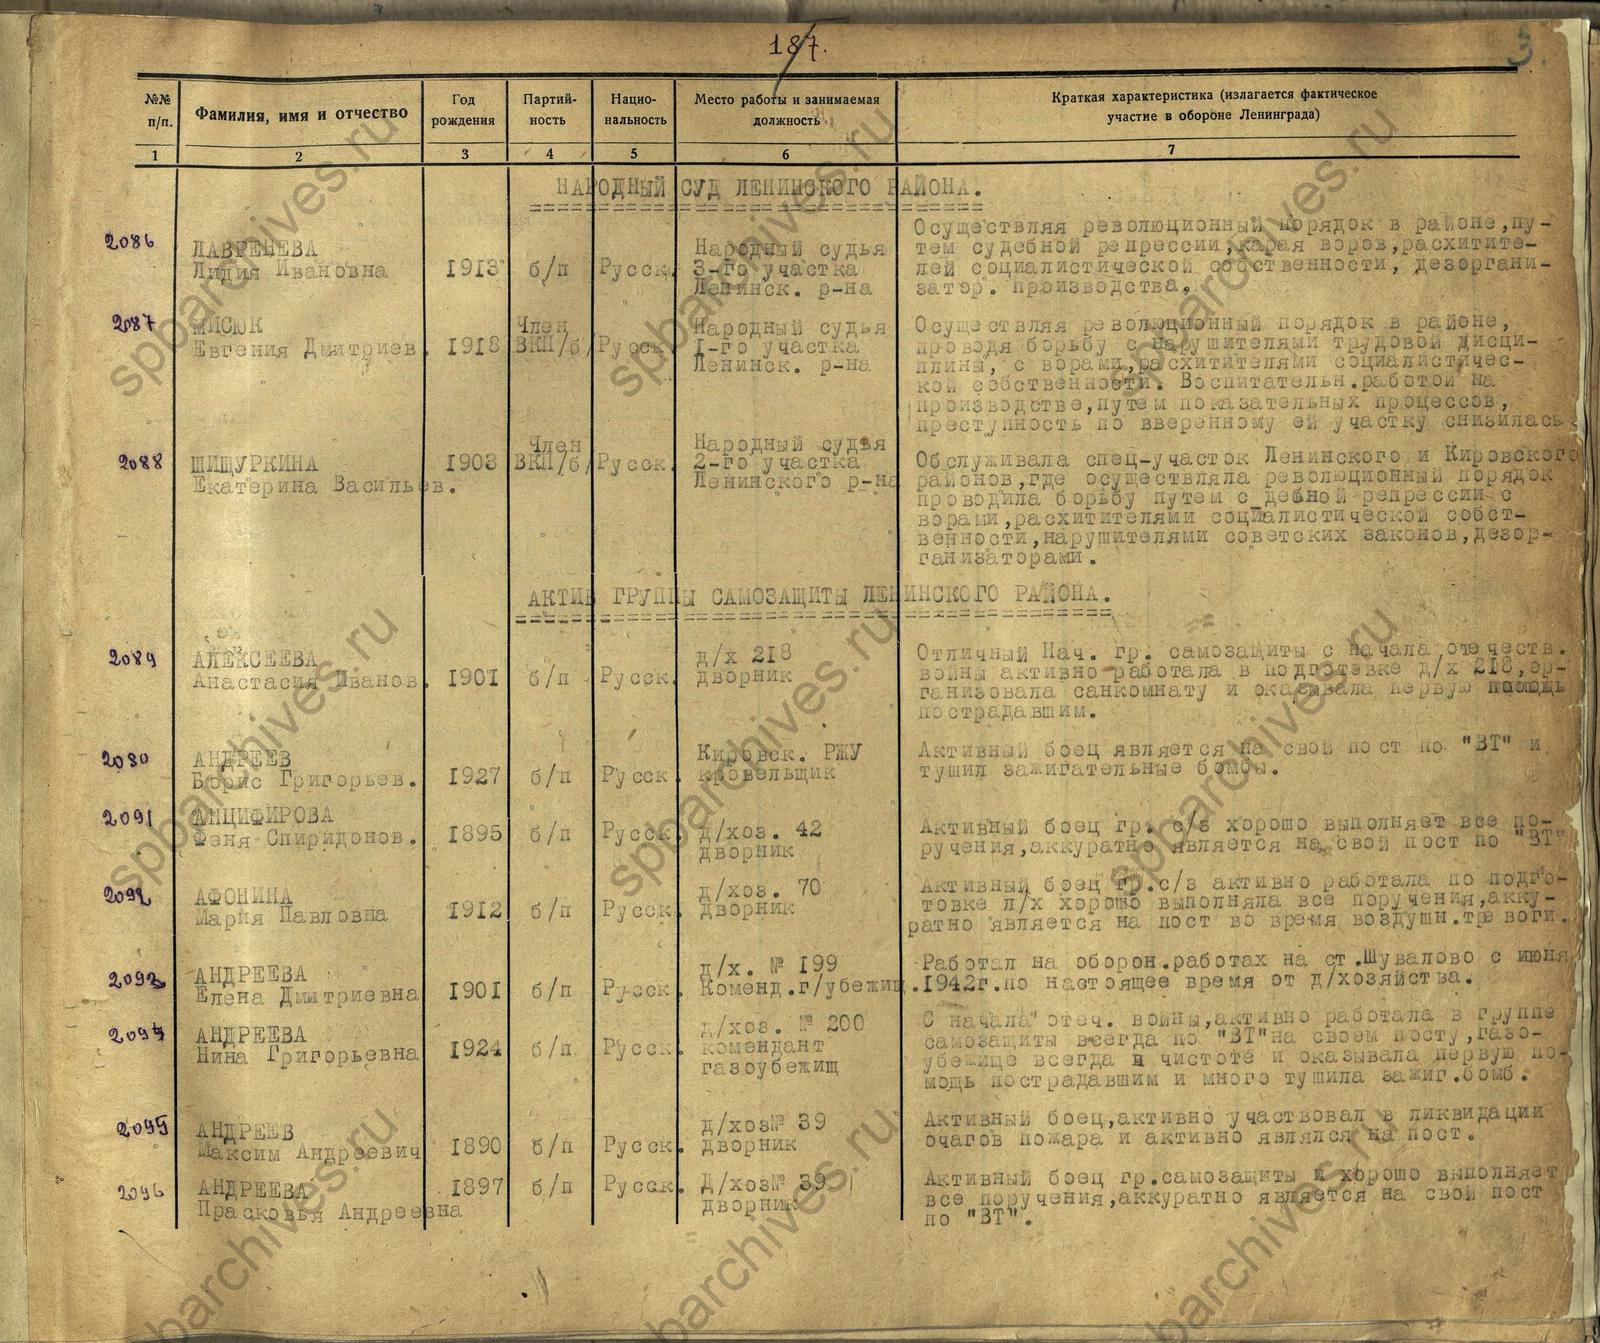 187.
5.
№№ п/п.
Фамилия, имя и отчество
Год рождения
Партий-ность
Нацио-нальность
Место работы и занимаемая должность
Краткая характеристика (излагается фактическое участие в обороне Ленинграда)
1 2 3 4 5 6 7
НАРОДНЫЙ СУД ЛЕНИНСКОГО РАЙОНА.
2086
ЛАВРЕНЕВА
Лидия Ивановна
1913
б/п
Русск.
Народный судья
3-го участка
Ленинск. р-на
Осуществляя революционный порядок в районе,пу-
тем судебной репрессии,карая воров,расхитите-
лей социалистической собственности, дезоргани-
затор. производства.
2087
МИСЮК
Евгения Дмитриев.
1918
Член
ВКП/б/
Русск.
Народный судья
1-го участка
Ленинск. р-на
Осуществляя революционный порядок в районе,
проводя борьбу с нарушителями трудовой дисци-
плины, с ворами,расхитителями социалистичес-
кой собственности. Воспитательн.работой на
производстве,путем показательных процессов,
преступность по вверенному ей участку снизилась.
2088
ШИЩУРКИНА
Екатерина Васильев.
1903
Член
ВКП/б/
Русск.
Народный судья
2-го участка
Ленинского р-на
Обслуживала спец-участок Ленинского и Кировского
районов,где осуществляла революционный порядок
проводила борьбу путем с дебной репрессии с
ворами,расхитителями социалистической собст-
венности,нарушителями советских законов,дезор-
ганизаторами.
АКТИВ ГРУППЫ САМОЗАЩИТЫ ЛЕНИНСКОГО РАЙОНА.
2089
АЛЕКСЕЕВА
Анастасия Иванов.
1901
б/п
Русск.
д/х 218
дворник
Отличный Нач. гр. самозащиты с начала отечеств.
войны активно работала в подготовке д/х 218,ор-
ганизовала санкомнату и оказывала первую помощь
пострадавшим.
2090
АНДРЕЕВ
Борис Григорьев.
1927
б/п
Русск.
Кировск. РЖУ
кровельщик
Активный боец является на свой пост по "ВТ" и
тушил зажигательные бомбы.
2091
АНЦИФИРОВА
Феня Спиридонов.
1895
б/п
Русск.
д/хоз. 42
дворник
Активный боец гр. с/з хорошо выполняет все по-
ручения,аккуратно является на свой пост по "ВТ"
2092
АФОНИНА
Мария Павловна
1912
б/п
Русск.
д/хоз. 70
дворник
Активный боец гр.с/з активно работала по подго-
товке л/х хорошо выполняла все поручения,акку-
ратно является на пост во время воздушн.тревоги.
2093
АНДРЕЕВА
Елена Дмитриевна
1901
б/п
Русск.
д/х. № 199
Коменд.г/убежищ.
Работал на оборон.работах на ст.Шувалово с июня
1942г.по настоящее время от д/хозяйства.
2094
АНДРЕЕВА
Нина Григорьевна
1924
б/п
Русск.
д/хоз. № 200
комендант
газоубежищ
С начала отеч. войны,активно работала в группе
самозащиты всегда по "ВТ"на своем посту,газо-
убежище всегда в чистоте и оказывала первую по-
мощь пострадавшим и много тушила зажиг.бомб.
2095
АНДРЕЕВ
Максим Андреевич
1890
б/п
Русск.
д/хоз№ 39
дворник
Активный боец,активно участвовал в ликвидации
очагов пожара и активно являлся на пост.
2096
АНДРЕЕВА
Прасковья Андреевна
1897
б/п
Русск.
Д/хоз№ 39
дворник
Активный боец гр.самозащиты и хорошо выполняет
все поручения,аккуратно является на свой пост
по "ВТ".
spbarchives.ru
spbarchives.ru
spbarchives.ru
spbarchives.ru
spbarchives.ru
spbarchives.ru
spbarchives.ru
spbarchives.ru
spbarchives.ru